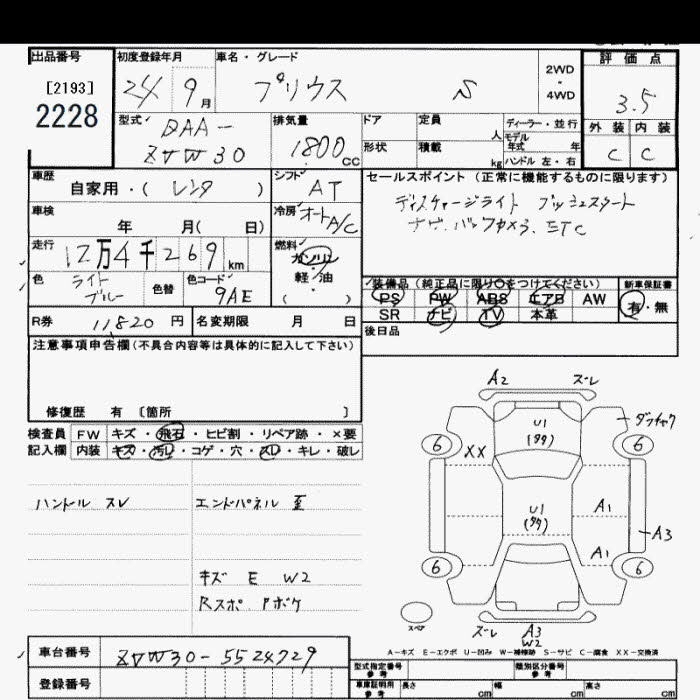 出品番号 初度登録年月 車名・グレード 評価点
[2193] 24 9月 プリウス S 2WD・4WD 3.5
2228
型式 DAA- 排気量 ドア 定員 人 ディーラー・並行 外装 内装
ZVW30 1800cc 形状 積載 kg モデル年式 年式 ハンドル 左・右 C C
車歴 シフト AT セールスポイント(正常に機能するものに限ります)
自家用・(レンタ) ディスチャージライト プッシュスタート
車検 年 月(日) 冷房 オート A/C ナビ.バックカメラ.ETC
走行 12万4千269km 燃料 ガソリン
色 ライトブルー 色替 色コード 9AE 軽・油 ( )
装備品(純正品に限り○をつけてください) 新車保証書
PS PW ABS エアB AW 有・無
SR ナビ TV 本革
R券 11,820円 名変期限 月 日 後日品
注意事項申告欄(不具合内容等は具体的に記入して下さい)
修復歴 有 〔箇所 〕
検査員 FW キズ・飛石・ヒビ割・リペア跡・×要
記入欄 内装 キズ・汚レ・コゲ・穴・スレ・キレ・破レ
ハンドル スレ エンドパネル 歪
キズ E W2
Rスポ Pボケ
A2 ズレ
U1 (タタ)
6 XX 6
U1 (タタ) A1
A3
A1
6 6
スペア ズレ A3
W2
A-キズ E-エクボ U-凹み W-補修跡 S-サビ C-腐食 XX-交換済
車台番号 ZVW30-5524729
登録番号
型式指定番号 参考 類別区分番号 参考
車庫証明用 参考 長さ cm 幅 cm 高さ cm